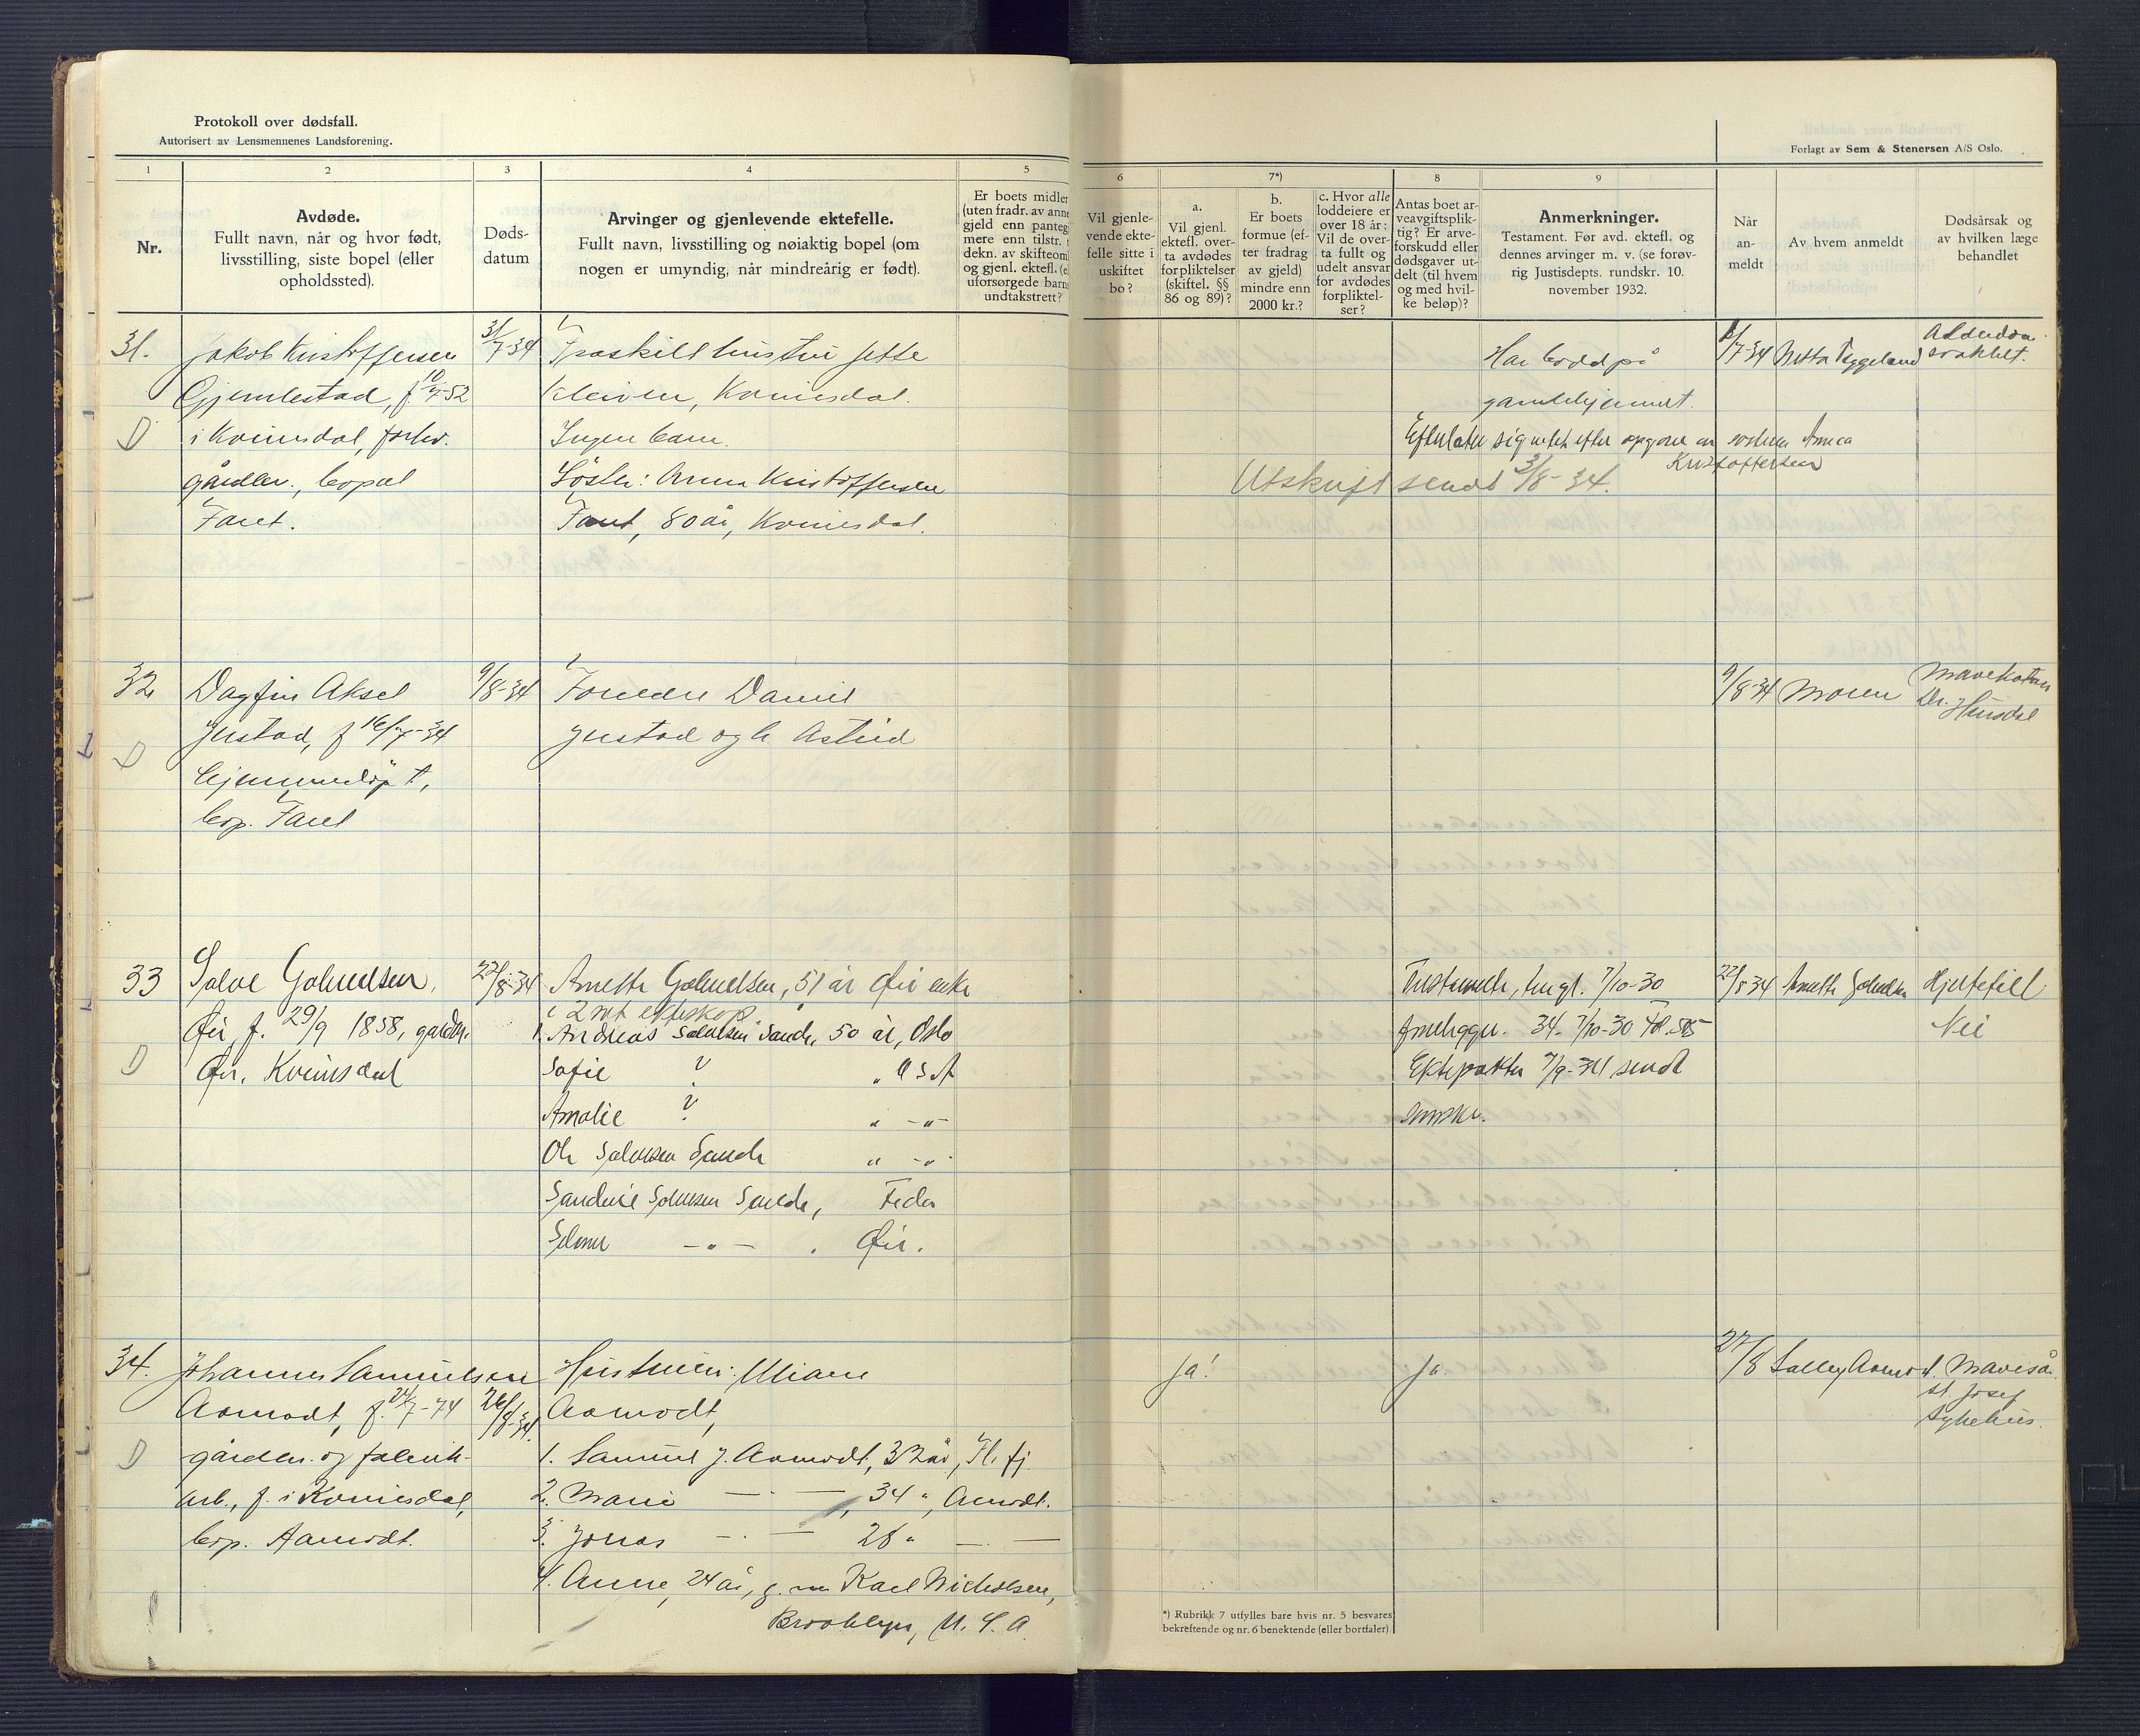 Protokoll over dødsfall.
Autorisert av Lensmennenes Landsforening.
Forlagt av Sem & Stenersen A/S Oslo.
1 2 3 4 5 6 7*) 8 9
Nr.
Avdøde.
Fullt navn, når og hvor født,
livsstilling, siste bopel (eller
opholdssted).
Døds-
datum
Arvinger og gjenlevende ektefelle.
Fullt navn, livsstilling og nøiaktig bopel (om
nogen er umyndig, når mindreårig er født).
Er boets midler
(uten fradr. av anne
gjeld enn panteg
mere enn tilstr. t
dekn. av skifteom
og gjenl. ektefl. (e
uforsørgede barn
undtakstrett?
Vil gjenle-
vende ekte-
felle sitte i
uskiftet
bo?
a.
Vil gjenl.
ektefl. over-
ta avdødes
forpliktelser
(skiftel. §§
86 og 89)?
b.
Er boets
formue (ef-
ter fradrag
av gjeld)
mindre enn
2000 kr.?
c. Hvor alle
loddeiere er
over 18 år:
Vil de over-
ta fullt og
udelt ansvar
for avdødes
forpliktel-
ser?
Antas boet ar-
veavgiftsplik-
tig? Er arve-
forskudd eller
dødsgaver ut-
delt (til hvem
og med hvil-
ke beløp)?
Anmerkninger.
Testament. Før avd. ektefl. og
dennes arvinger m. v. (se forøv-
rig Justisdepts. rundskr. 10.
november 1932.
Når
an-
meldt
Av hvem anmeldt
Dødsårsak og
av hvilken læge
behandlet
31.
Jakob Kristoffersen
Gjemlestad, f.
i Kvinesdal, forhv.
gårdbr., bopæl
Faret.
31/7-34
Fraskilt hustru Jette
Kleiven, Kvinesdal.
Ingen barn.
Söster: Anna Kristoffersen
Faret, 80 år, Kvinesdal.
Har bodd på
gamlehjemmet.
søsteren Anna
Kristoffersen
Utskrift sendt 3/8-34.
7-34
Alderdoms
svakhet.
32
Dagfin Aksel
Jerstad, f 16/7-34
hjemmedøpt,
bop. Faret
9/8-34
Foreldre Daniel
Jerstad og h. Astrid
9/8-34
Moren
Mavekatarr
Dr. Hinsdal
33
Salve
Øie, f. 29/9 1858, gårdbr.
Øie, Kvinesdal
22/8-34
Anette, 51 år Øie enke
i 2net ekteskap
1. Andreas Salvesen Sande, 50 år, Oslo
Sofie ? " U S A
Amalie ? " -"-
Ole Salvesen Sande " -"-
Sanderie Salvesen Sande, Feda
Selmer -"- . Øie.
Testamente, tingl. 7/10-30
34- 7/10-30 Fol. 515
Ektepakten 7/9-34 sendt
22/8 34
Anette
Hjertefeil
Nei
34.
Johannes Samuelsen
Aamodt, f. 24/7-74
gårdbr. og fabrik-
arb., f. i Kvinesdal,
bop. Aamodt.
26/8-34.
Hustruen: Uliane
Aamodt,
1. Samuel J. Aamodt, 32 år, Fl. fj.
2. Marie — · —, 34 ", Aamodt.
3. Jonas — · — 28 " — · —
4. Anne, 24 år, g. m Karl Nicholsen,
Brooklyn, U. S. A.
Ja!
Ja.
27/8
Salley Aamodt.
Mavesår
St. Josef
sykehus.
*) Rubrikk 7 utfylles bare hvis nr. 5 besvares
bekreftende og nr. 6 benektende (eller bortfaler)